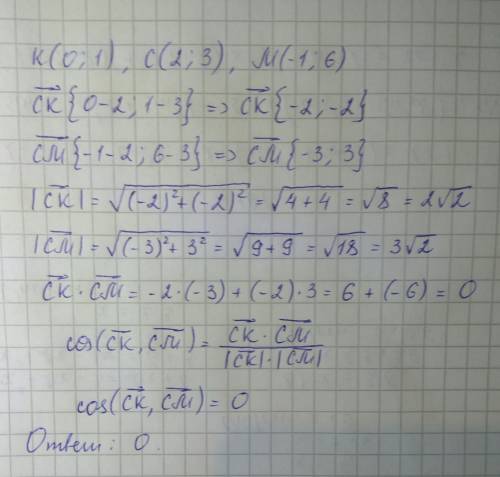 K(0;1), C(2;3), M(-1;6)
C͞K͞{0-2; 1-3} => C͞K͞{-2;-2}
C͞M͞{-1-2; 6-3} => C͞M͞{-3; 3}
|C͞K͞| = √((-2)²+(-2)²) = √(4+4) = √8 = 2√2
|C͞M͞| = √((-3)²+3²) = √(9+9) = √18 = 3√2
C͞K͞ · C͞M͞ = -2·(-3)+(-2)·3 = 6+(-6) = 0
cos(C͞K͞, C͞M͞) = C͞K͞ · C͞M͞ / |C͞K͞|·|C͞M͞|
cos(C͞K͞, C͞M͞) = 0
Ответ: 0.